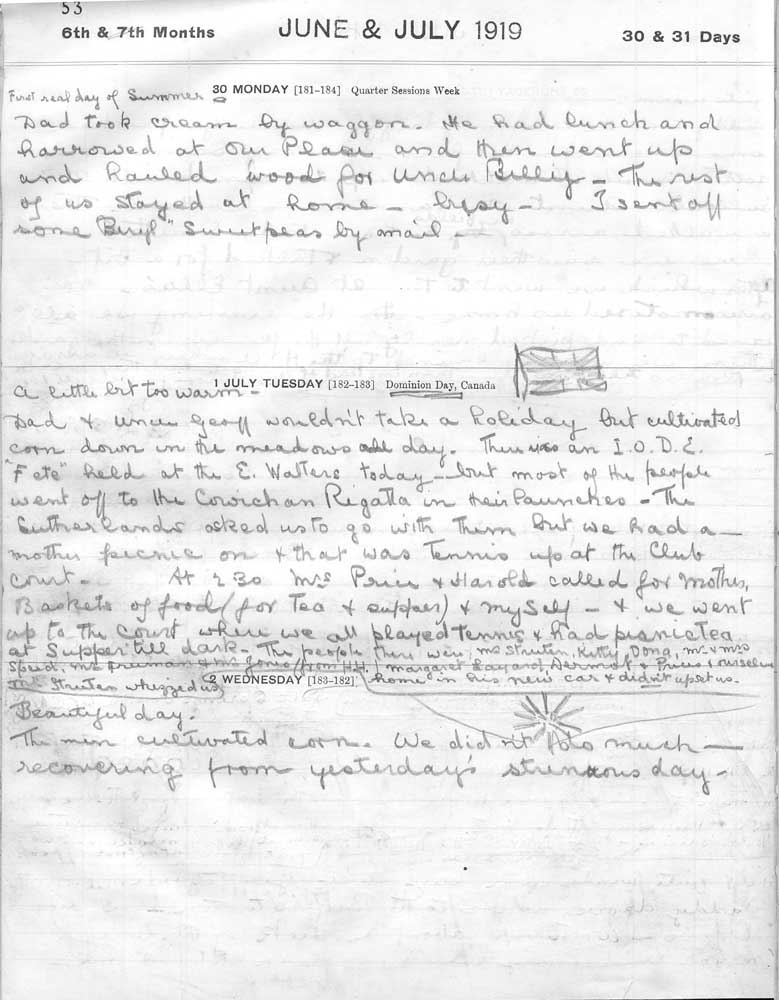 53
6th & 7th Months JUNE & JULY 1919 30 & 31 Days
First real day of Summer 30 MONDAY [181-184] Quarter Sessions Week
Dad took cream by waggon. He had lunch and
harrowed at our Place and then went up
and hauled wood for Uncle Billy - The rest
of us stayed at home - busy - I sent off
some "Beryl" Sweetpeas by mail.-
1 JULY TUESDAY [182-183] Dominion Day, Canada
A little bit too warm -
Dad & Uncle Geoff wouldn't take a holiday but cultivated
corn down in the meadows all day. There was an I.O.D.E.
"Fete" held at the E. Walters today - but most of the people
went off to the Cowichan Regatta in their launches - The
Sutherlands asked us to go with them but we had a-
nother picnic on & that was Tennis up at the Club
Court. At 2 30 Mrs Price & Harold called for Mother,
Baskets of food (for Tea & supper) & myself - & we went
up to the Court where we all played tennis & had picnic Tea
at Supper till dark - The people there were, Mr Struten, Kitty, Dona, Mr & Mrs
Speed, Mr Freeman & Mr Jones (from H.H.) Margaret Layard Dermot & Prices & ourselves
Mr Struten whizzed us home in his new car & didn't upset us.
2 WEDNESDAY [183-182]
Beautiful day.
The men cultivated corn. We didn't do much -
recovering from yesterday's strenuous day -